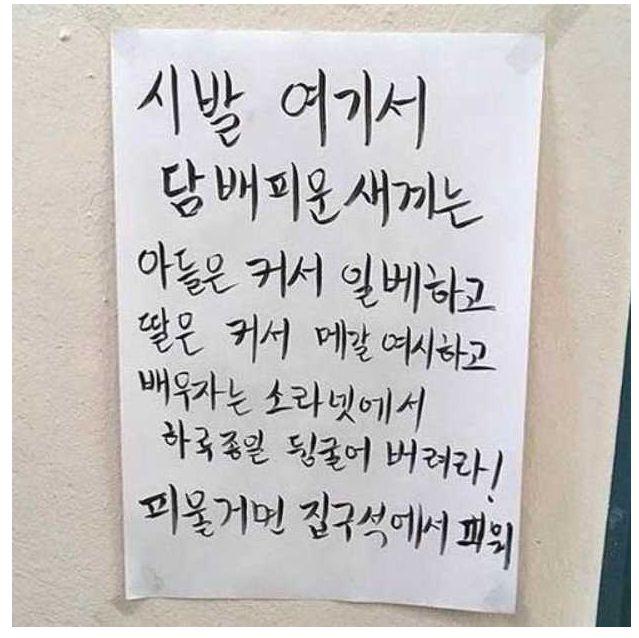 시발 여기서
담배피운새끼는
아들은 커서 일베하고
딸은 커서 메갈여시하고
배우자는 소라넷에서
하루종일 뒹굴어 버려라!
피울거면 집구석에서 펴워